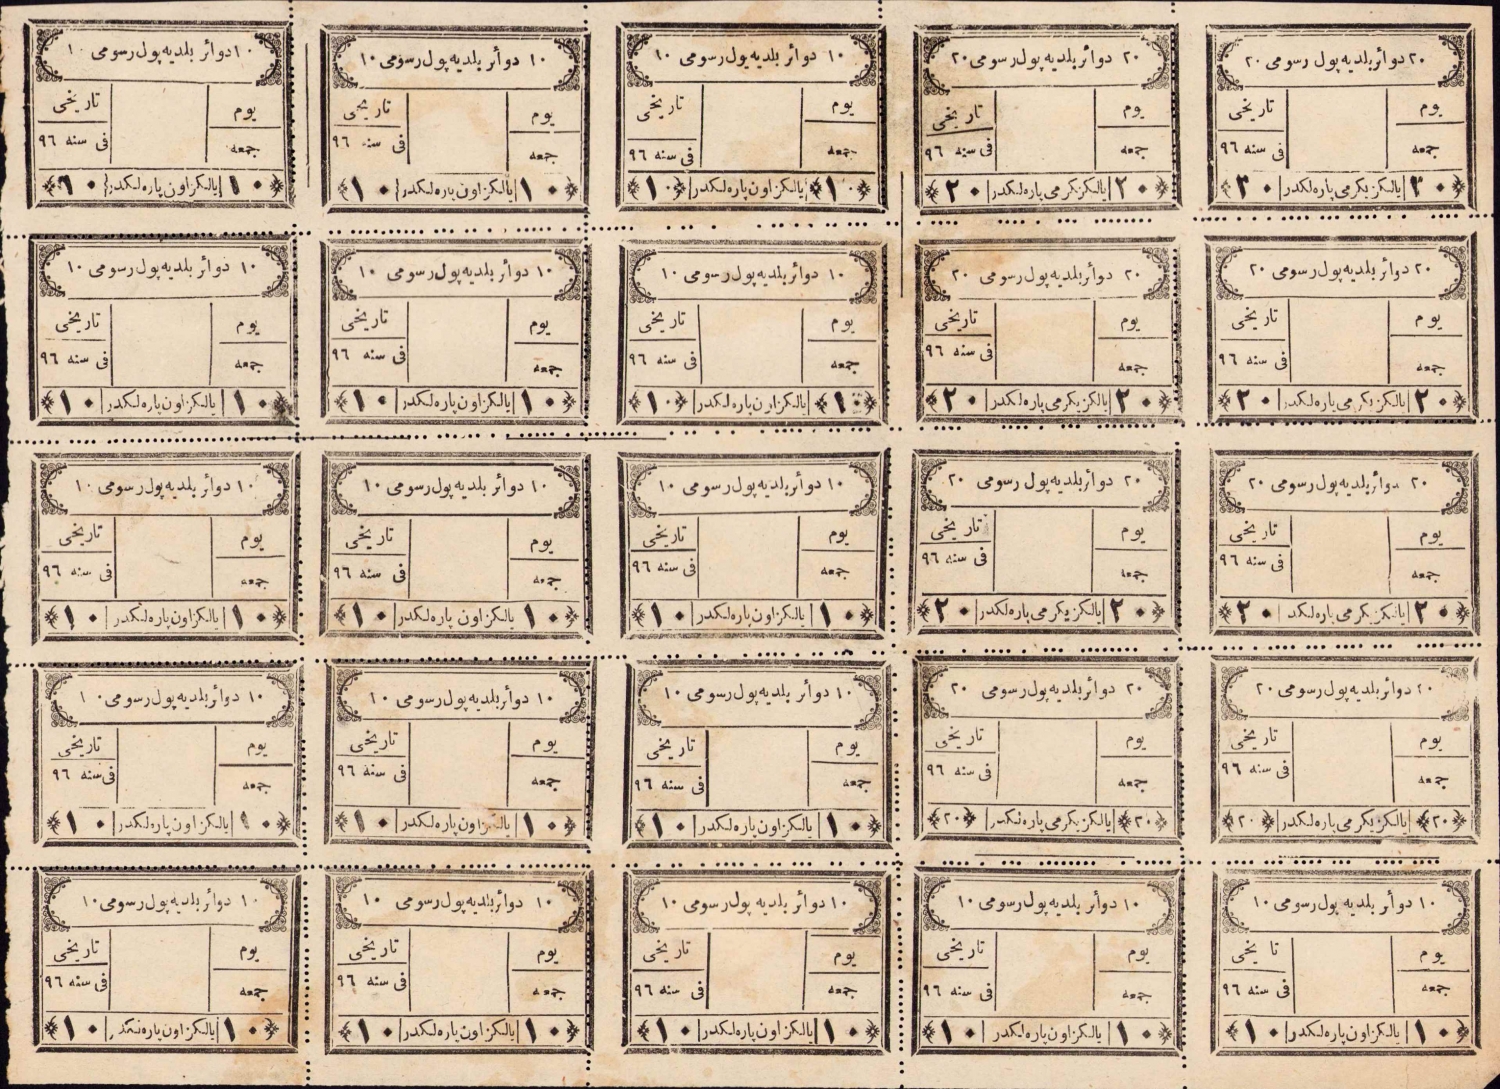 ٢٠ دوائر بلديه پول رسومى ٢٠
يوم تاريخى
جمعه فى سنه ٩٦
٢٠ يالكز يكرمى پاره لكدر ٢٠
٢٠ دوائر بلديه پول رسومى ٢٠
يوم تاريخى
جمعه فى سنه ٩٦
٢٠ يالكز يكرمى پاره لكدر ٢٠
١٠ دوائر بلديه پول رسومى ١٠
يوم تاريخى
جمعه فى سنه ٩٦
١٠ يالكز اون پاره لكدر ١٠
١٠ دوائر بلديه پول رسومى ١٠
يوم تاريخى
جمعه فى سنه ٩٦
١٠ يالكز اون پاره لكدر ١٠
١٠ دوائر بلديه پول رسومى ١٠
يوم تاريخى
جمعه فى سنه ٩٦
١٠ يالكز اون پاره لكدر ١٠
٢٠ دوائر بلديه پول رسومى ٢٠
يوم تاريخى
جمعه فى سنه ٩٦
٢٠ يالكز يكرمى پاره لكدر ٢٠
٢٠ دوائر بلديه پول رسومى ٢٠
يوم تاريخى
جمعه فى سنه ٩٦
٢٠ يالكز يكرمى پاره لكدر ٢٠
١٠ دوائر بلديه پول رسومى ١٠
يوم تاريخى
جمعه فى سنه ٩٦
١٠ يالكز اون پاره لكدر ١٠
١٠ دوائر بلديه پول رسومى ١٠
يوم تاريخى
جمعه فى سنه ٩٦
١٠ يالكز اون پاره لكدر ١٠
١٠ دوائر بلديه پول رسومى ١٠
يوم تاريخى
جمعه فى سنه ٩٦
١٠ يالكز اون پاره لكدر ١٠
٢٠ دوائر بلديه پول رسومى ٢٠
يوم تاريخى
جمعه فى سنه ٩٦
٢٠ يالكز يكرمى پاره لكدر ٢٠
٢٠ دوائر بلديه پول رسومى ٢٠
يوم تاريخى
جمعه فى سنه ٩٦
٢٠ يالكز يكرمى پاره لكدر ٢٠
١٠ دوائر بلديه پول رسومى ١٠
يوم تاريخى
جمعه فى سنه ٩٦
١٠ يالكز اون پاره لكدر ١٠
١٠ دوائر بلديه پول رسومى ١٠
يوم تاريخى
جمعه فى سنه ٩٦
١٠ يالكز اون پاره لكدر ١٠
١٠ دوائر بلديه پول رسومى ١٠
يوم تاريخى
جمعه فى سنه ٩٦
١٠ يالكز اون پاره لكدر ١٠
٢٠ دوائر بلديه پول رسومى ٢٠
يوم تاريخى
جمعه فى سنه ٩٦
٢٠ يالكز يكرمى پاره لكدر ٢٠
٢٠ دوائر بلديه پول رسومى ٢٠
يوم تاريخى
جمعه فى سنه ٩٦
٢٠ يالكز يكرمى پاره لكدر ٢٠
١٠ دوائر بلديه پول رسومى ١٠
يوم تاريخى
جمعه فى سنه ٩٦
١٠ يالكز اون پاره لكدر ١٠
١٠ دوائر بلديه پول رسومى ١٠
يوم تاريخى
جمعه فى سنه ٩٦
١٠ يالكز اون پاره لكدر ١٠
١٠ دوائر بلديه پول رسومى ١٠
يوم تاريخى
جمعه فى سنه ٩٦
١٠ يالكز اون پاره لكدر ١٠
١٠ دوائر بلديه پول رسومى ١٠
يوم تاريخى
جمعه فى سنه ٩٦
١٠ يالكز اون پاره لكدر ١٠
١٠ دوائر بلديه پول رسومى ١٠
يوم تاريخى
جمعه فى سنه ٩٦
١٠ يالكز اون پاره لكدر ١٠
١٠ دوائر بلديه پول رسومى ١٠
يوم تاريخى
جمعه فى سنه ٩٦
١٠ يالكز اون پاره لكدر ١٠
١٠ دوائر بلديه پول رسومى ١٠
يوم تاريخى
جمعه فى سنه ٩٦
١٠ يالكز اون پاره لكدر ١٠
١٠ دوائر بلديه پول رسومى ١٠
يوم تاريخى
جمعه فى سنه ٩٦
١٠ يالكز اون پاره لكدر ١٠